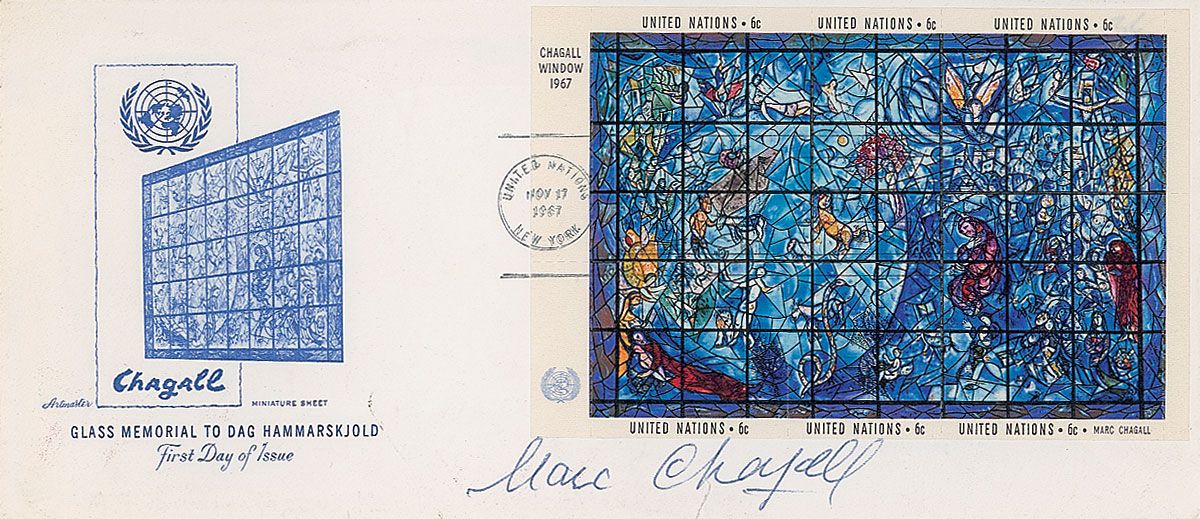 UNITED NATIONS • 6c UNITED NATIONS • 6c UNITED NATIONS • 6c
CHAGALL
WINDOW
1967
UNITED NATIONS
NOV 17
1967
NEW YORK
Chagall
Artmaster
MINIATURE SHEET
GLASS MEMORIAL TO DAG HAMMARSKJOLD
First Day of Issue
UNITED NATIONS • 6c UNITED NATIONS • 6c UNITED NATIONS • 6c • MARC CHAGALL
Marc Chagall